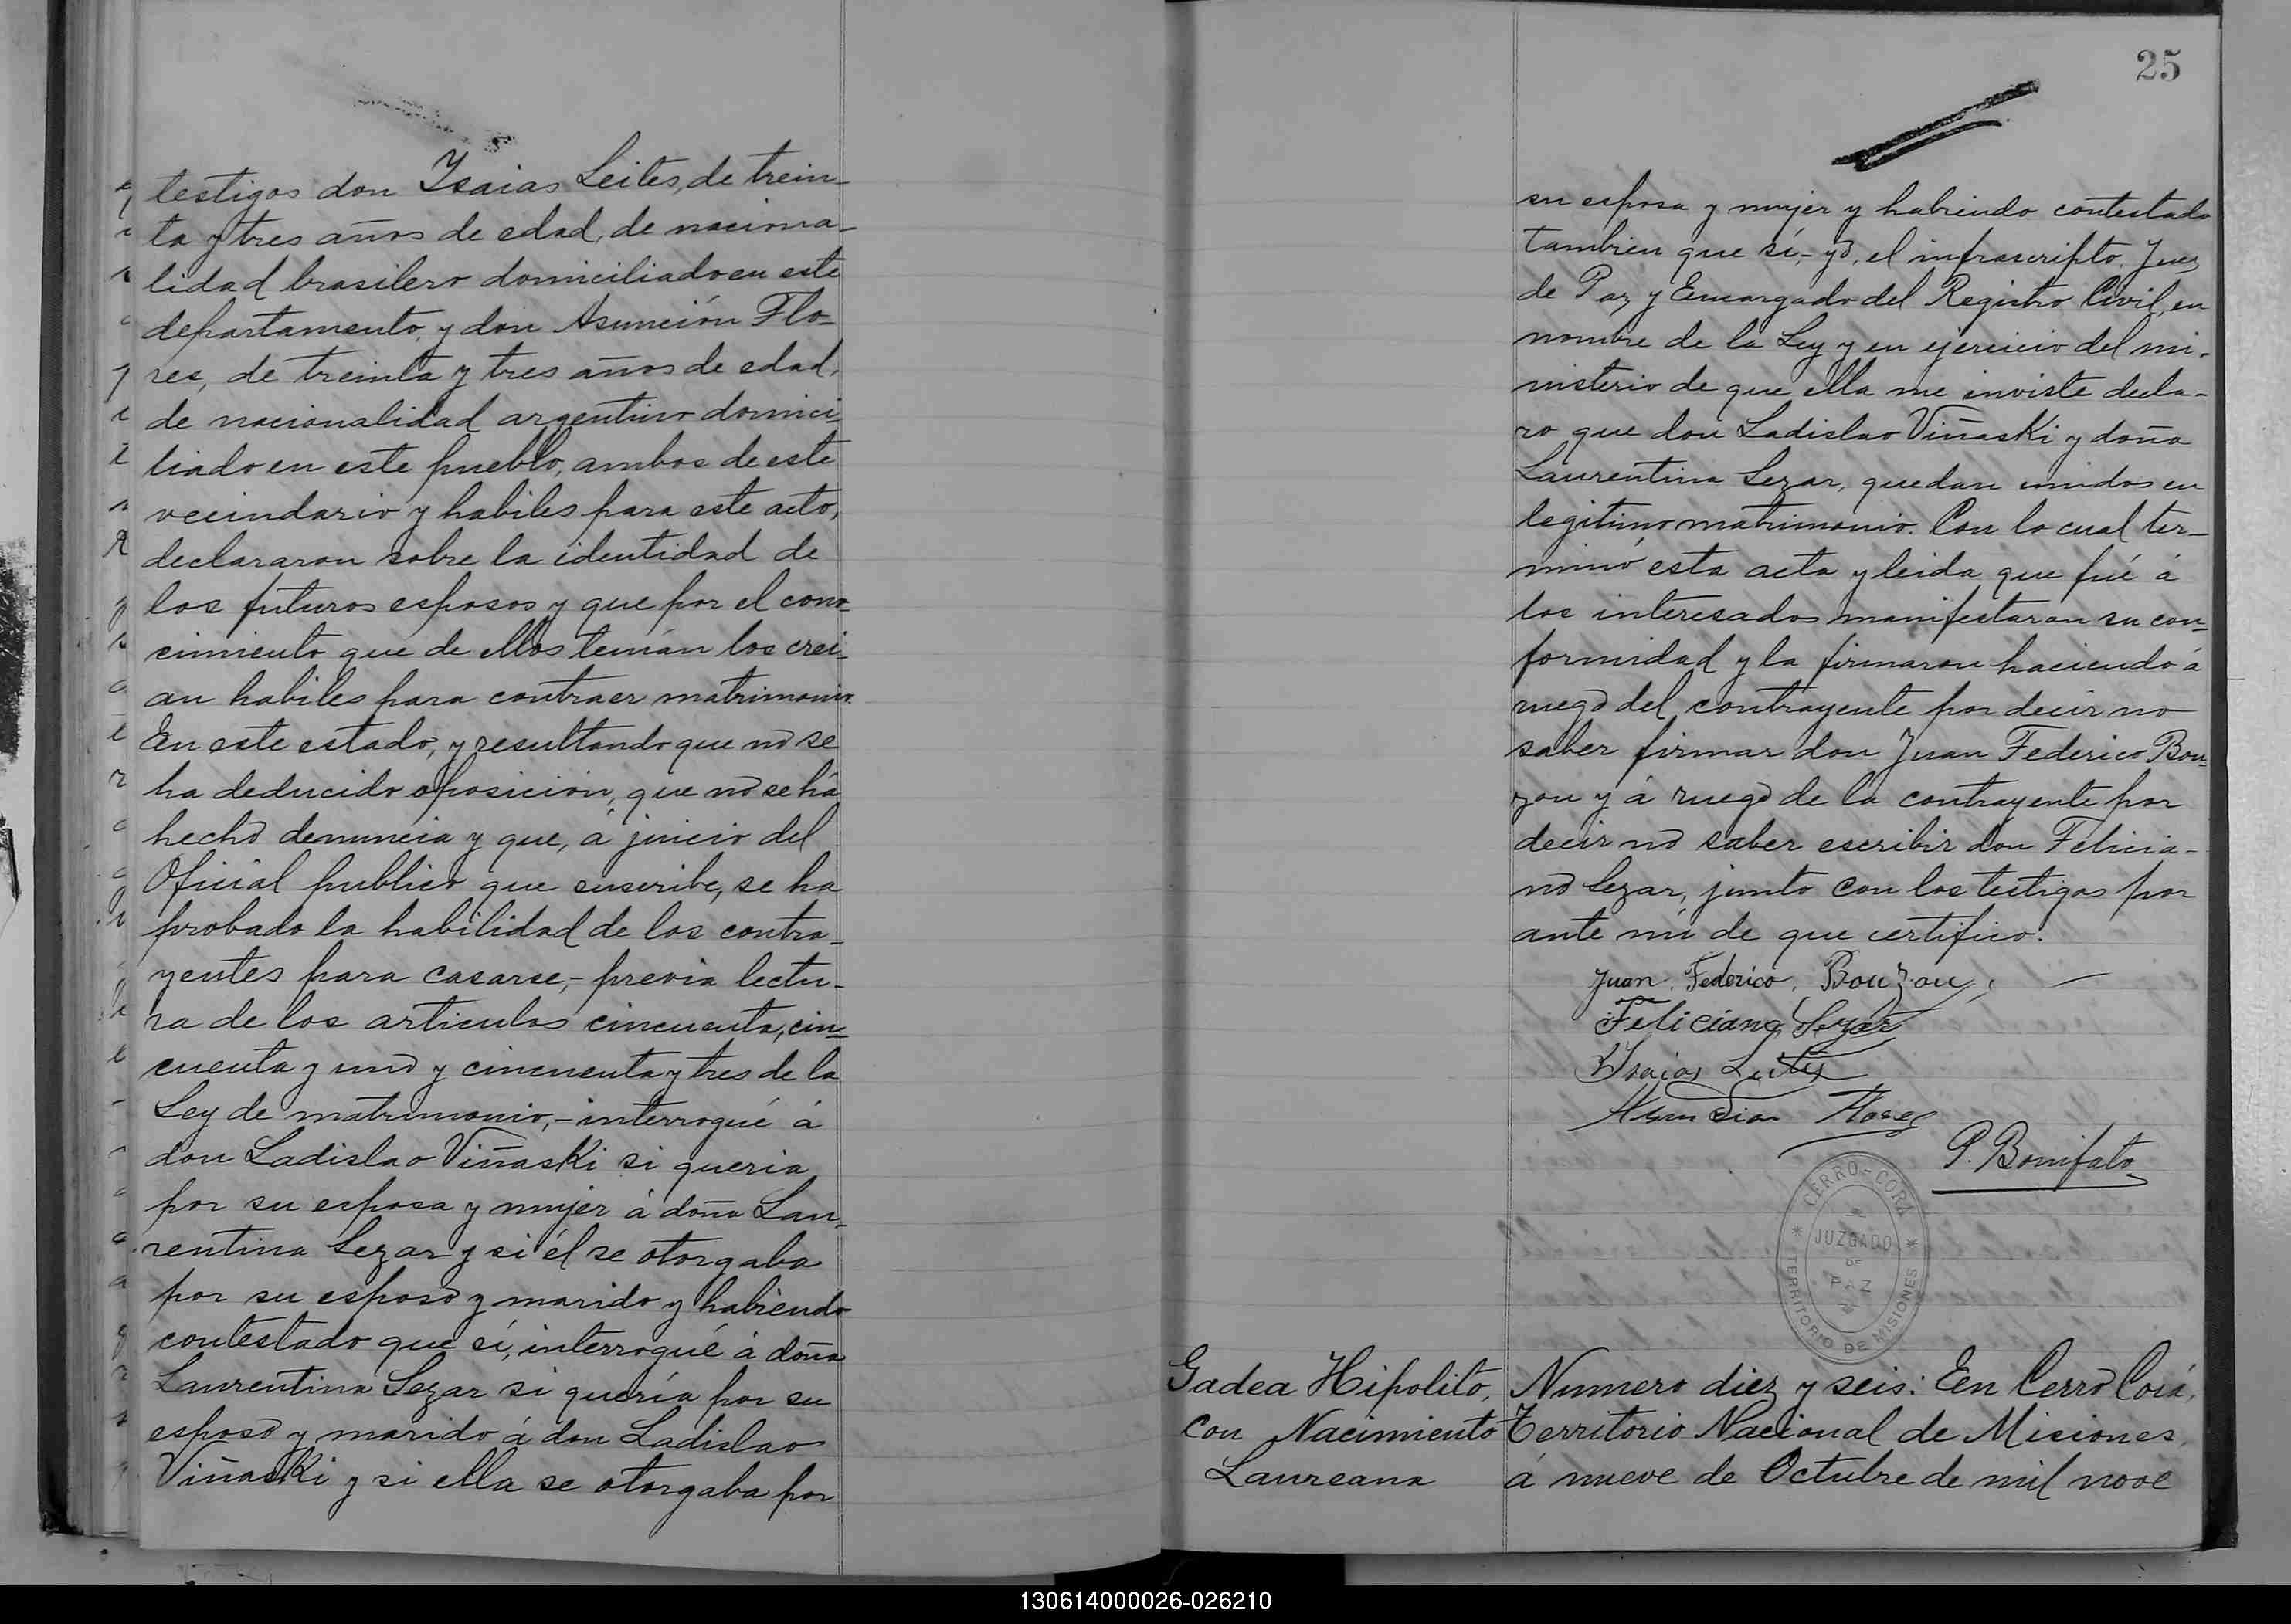 testigos don Isaias Leites, de trein-
ta y tres años de edad, de naciona-
lidad brasilero domiciliado en este
departamento, y don Asunción Flo-
res, de treinta y tres años de edad,
de nacionalidad argentino domici-
liado en este pueblo, ambos de este
vecindario y habiles para este acto,
declararon sobre la identidad de
los futuros esposos y que por el cono-
cimiento que de ellos tenían los crei-
an habiles para contraer matrimonio.
En este estado, y resultando que no se
ha deducido oposición, que no se há
hecho denuncia y que, á juicio del
Oficial publico que suscribe, se ha
probado la habilidad de los contra-
yentes para casarse,- previa lectu-
ra de los articulos cincuenta, cin-
cuenta y uno y cincuenta y tres de la
Ley de matrimonio,- interrogué á
don Ladislao Viñaski si queria
por su esposa y mujer á doña Lau-
rentina Lezar y si él se otorgaba
por su esposo y marido y habiendo
contestado que sí, interrogué á doña
Laurentina Lezar si quería por su
esposo y marido á don Ladislao
Viñaski y si ella se otorgaba por
25
su esposa y mujer y habiendo contestado
tambien que sí,- yo, el infrascripto, Juez
de Paz y Encargado del Registro Civil, en
nombre de la Ley y en ejercicio del mi-
nisterio de que ella me inviste decla-
ro que don Ladislao Viñaski y doña
Laurentina Lezar, quedan unidos en
legitimo matrimonio. Con lo cual ter-
minó esta acta y leida que fué á
los interesados manifestaron su con-
formidad y la firmaron haciendo á
ruego del contrayente por decir no
saber firmar don Juan Federico Bou-
zon y á ruego de la contrayente por
decir no saber escribir don Felicia-
no Lezar, junto con los testigos por
ante mí de que certifico.
Juan Federico Bouzon
Feliciano Lezar
Isaias Leites
Asuncion Flores
P. Bonifato
CERRO-CORA
JUZGADO
DE
PAZ
TERRITORIO DE MISIONES
Gadea Hipolito,
con Nacimiento
Laureana
Numero diez y seis: En Cerro Corá,
Territorio Nacional de Misiones,
á nueve de Octubre de mil nove
130614000026-026210